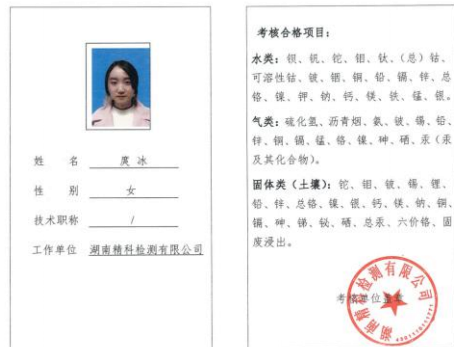 姓 名 虞冰
性 别 女
技术职称 /
工作单位 湖南精科检测有限公司
考核合格项目：
水类：钡、钒、铊、钼、钛、（总）钴、
可溶性钴、铍、铟、铜、铅、镉、锌、总
铬、镍、钾、钠、钙、镁、铁、锰、银。
气类：硫化氢、沥青烟、氨、铍、锡、铅、
锌、铜、镉、锰、铬、镍、砷、硒、汞（汞
及其化合物）。
固体类（土壤）：铊、钼、铍、锡、锂、
铅、锌、总铬、镍、银、钙、镁、钠、铜、
镉、砷、锑、铋、硒、总汞、六价铬、固
废浸出。
考核单位盖章
湖南精科检测有限公司